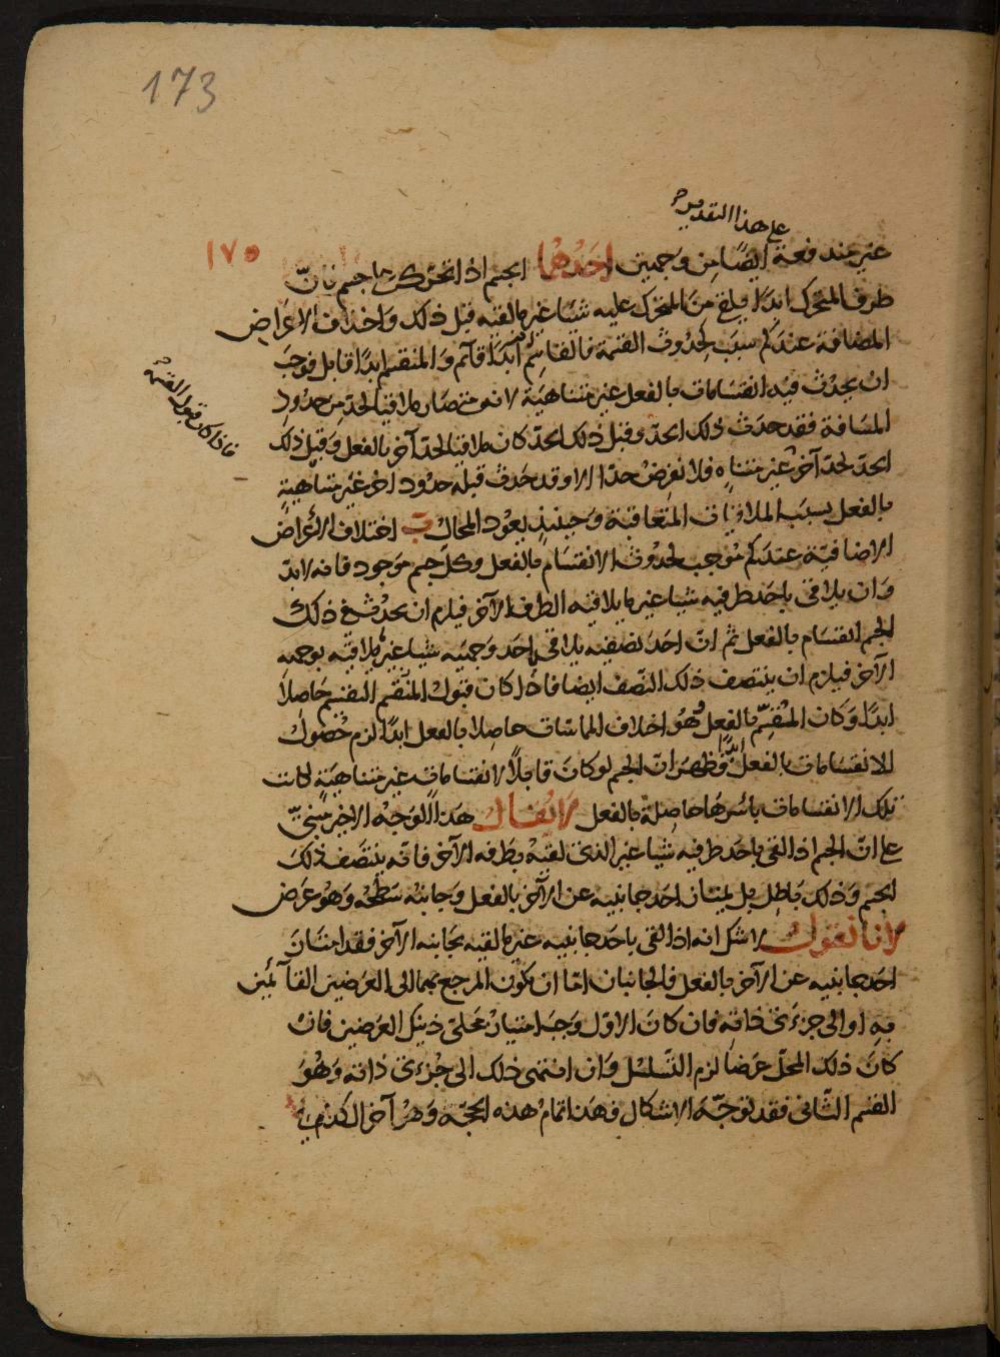 173
على هذا التقدير
١٧٥
غير مندفعة ايضًا من وجهين احدهما الجسم اذا تحرك على جسم فانّ
طرف المتحرك ابدًا يلقى من المتحرك عليه شيئا غير ما لقيه قبل ذلك واختلاف الاعراض
المضافة عندكم سبب لحدوث القسمة فالقاسم ابدًا قائم والمنقسم ابدًا قابل فوجب
ان يحدث فيه انقسامات بالفعل غير متناهية لانه متى صار ملاقيا لحدّ من حدود
المسافة فقد حدث ذلك الحدّ وقبل ذلك الحدّ كان ملاقيا لحدّ آخر بالفعل وقبل ذلك
فاذا كان قبول القسمة
الحدّ لحدّ آخر غير متناه فلا نفرض حدّا الا وقد حدث قبله حدود اخر غير متناهية
بالفعل بسبب الملاقيات المتعاقبة وحينئذ يعود المحال ب اختلاف الأعراض
الاضافيّة عندكم موجب لحدوث الانقسام بالفعل وكل جسم موجود فانه لا بدّ
وان يلاقى باحد طرفيه شيئا غير ما يلاقيه الطرف الآخر فيلزم ان يحدث في ذلك
الجسم انقسام بالفعل ثم انّ احد نصفيه يلاقى باحد وجهيه شيئا غير ما يلاقيه بوجهه
الآخر فيلزم ان ينتصف ذلك النصف ايضا فاذا كان قبول المنقسم التقسيم حاصلًا
ابدًا وكان المقسّم بالفعل وهو اختلاف المماسّات حاصلا بالفعل ابدًا لزم حصول
الانقسامات بالفعل ابدًا فظهر انّ الجسم لو كان قابلًا لانقسامات غير متناهية لكانت
تلك الانقسامات باسرها حاصلة بالفعل لا يقال هذا الوجه الاخير مبنيّ
على انّ الجسم اذا لقى باحد طرفيه شيئا غير الذى لقيه بطرفه الآخر فانه ينتصف ذلك
الجسم وذلك باطل بل يمتاز احد جانبيه عن الآخر بالفعل وجانبه سطحه وهو عرض
لانا نقول لا شك انه اذا لقى باحد جانبيه غير ما لقيه بجانبه الآخر فقد امتاز
احد جانبيه عن الآخر بالفعل فالجانبان امّا ان يكون المرجع بهما الى العرضين القائمين
به او الى جزءى ذاته فان كان الاوّل وجب امتياز محلّى ذينك العرضين فان
كان ذلك المحلّ عرضا لزم التسلسل وان انتهى ذلك الى جزءى ذاته وهو
القسم الثانى فقد توجّه الاشكال فهذا تمام هذه الحجّة وهو آخر الكلام